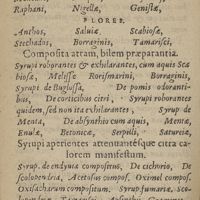 Raphani, Nigellæ, Genistæ,
FLORES.
Anthos, Salviæ, Scabiosæ,
Stechados, Borraginis, Tamarisci,
Composita atram, bilem præparantia.
Syrupi roborantes & exhilarantes, cum aquis Sca
biosæ, Melissæ Rorismarini, Borraginis,
Syrupi de Buglossa, De pomis odoranti-
bus, De corticibus citri, Syrupi roborantes
quidem, sed non ita exhilarantes, Syrup de
Menta, De absynthio cum aquis, Mentæ,
Enulæ, Betonicæ, Serpilli, Satureiæ,
Syrupi aperientes attenuantésque citra ca-
lorem manifestum.
Syrup. de endyvia compositus, De cichorio, De
scolopendria, Acetosus compos. Oximel compos.
Oxisacharum compositum. Syrup fumariæ, sco-